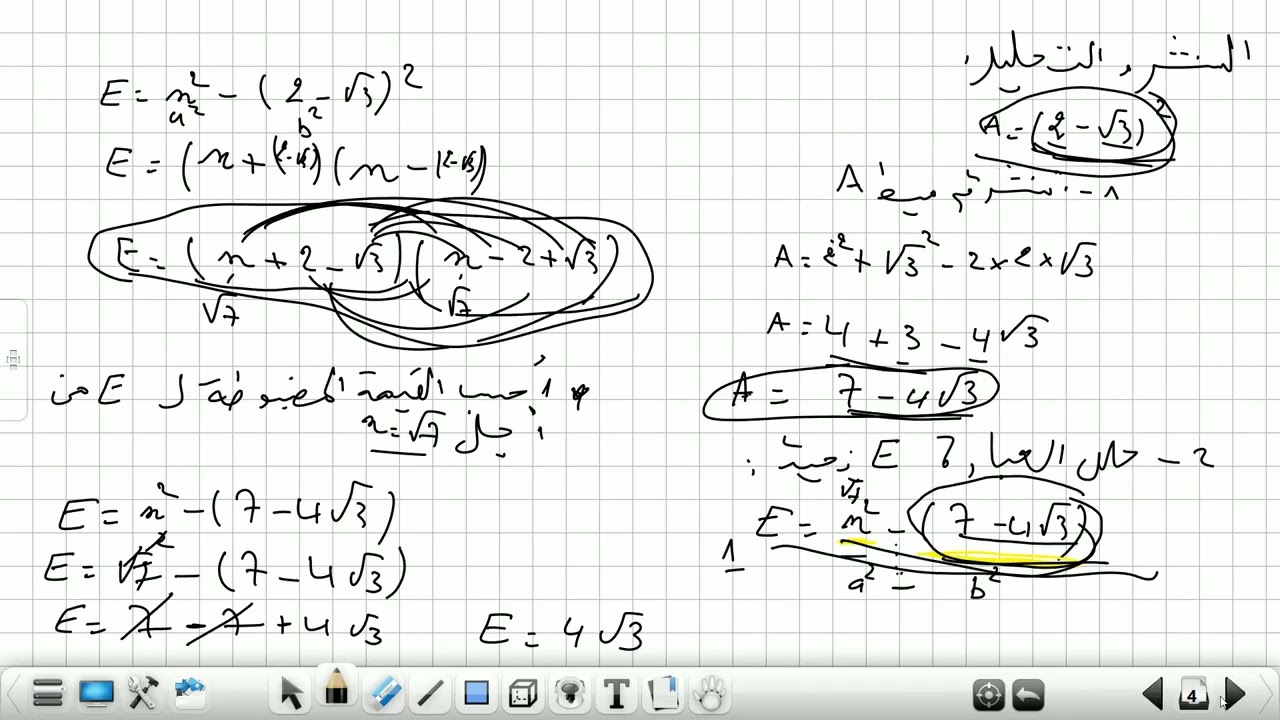 النشر و التحليل:
A = (2 - √3)²
1 - انشر ثم بسط A
A = 2² + √3² - 2 × 2 × √3
A = 4 + 3 - 4√3
A = 7 - 4√3
2 - حلل العبارة E حيث:
√7
E = x² - (7 - 4√3)
1
a² - b²
E = x² - (2 - √3)²
a² b²
E = (x + (2-√3)) (x - (2-√3))
E = (x + 2 - √3) (x - 2 + √3)
√7 √7
أحسب القيمة المضبوطة ل E من
أجل x = √7
E = x² - (7 - 4√3)
E = √7² - (7 - 4√3)
E = 7 - 7 + 4√3
E = 4√3
T
4